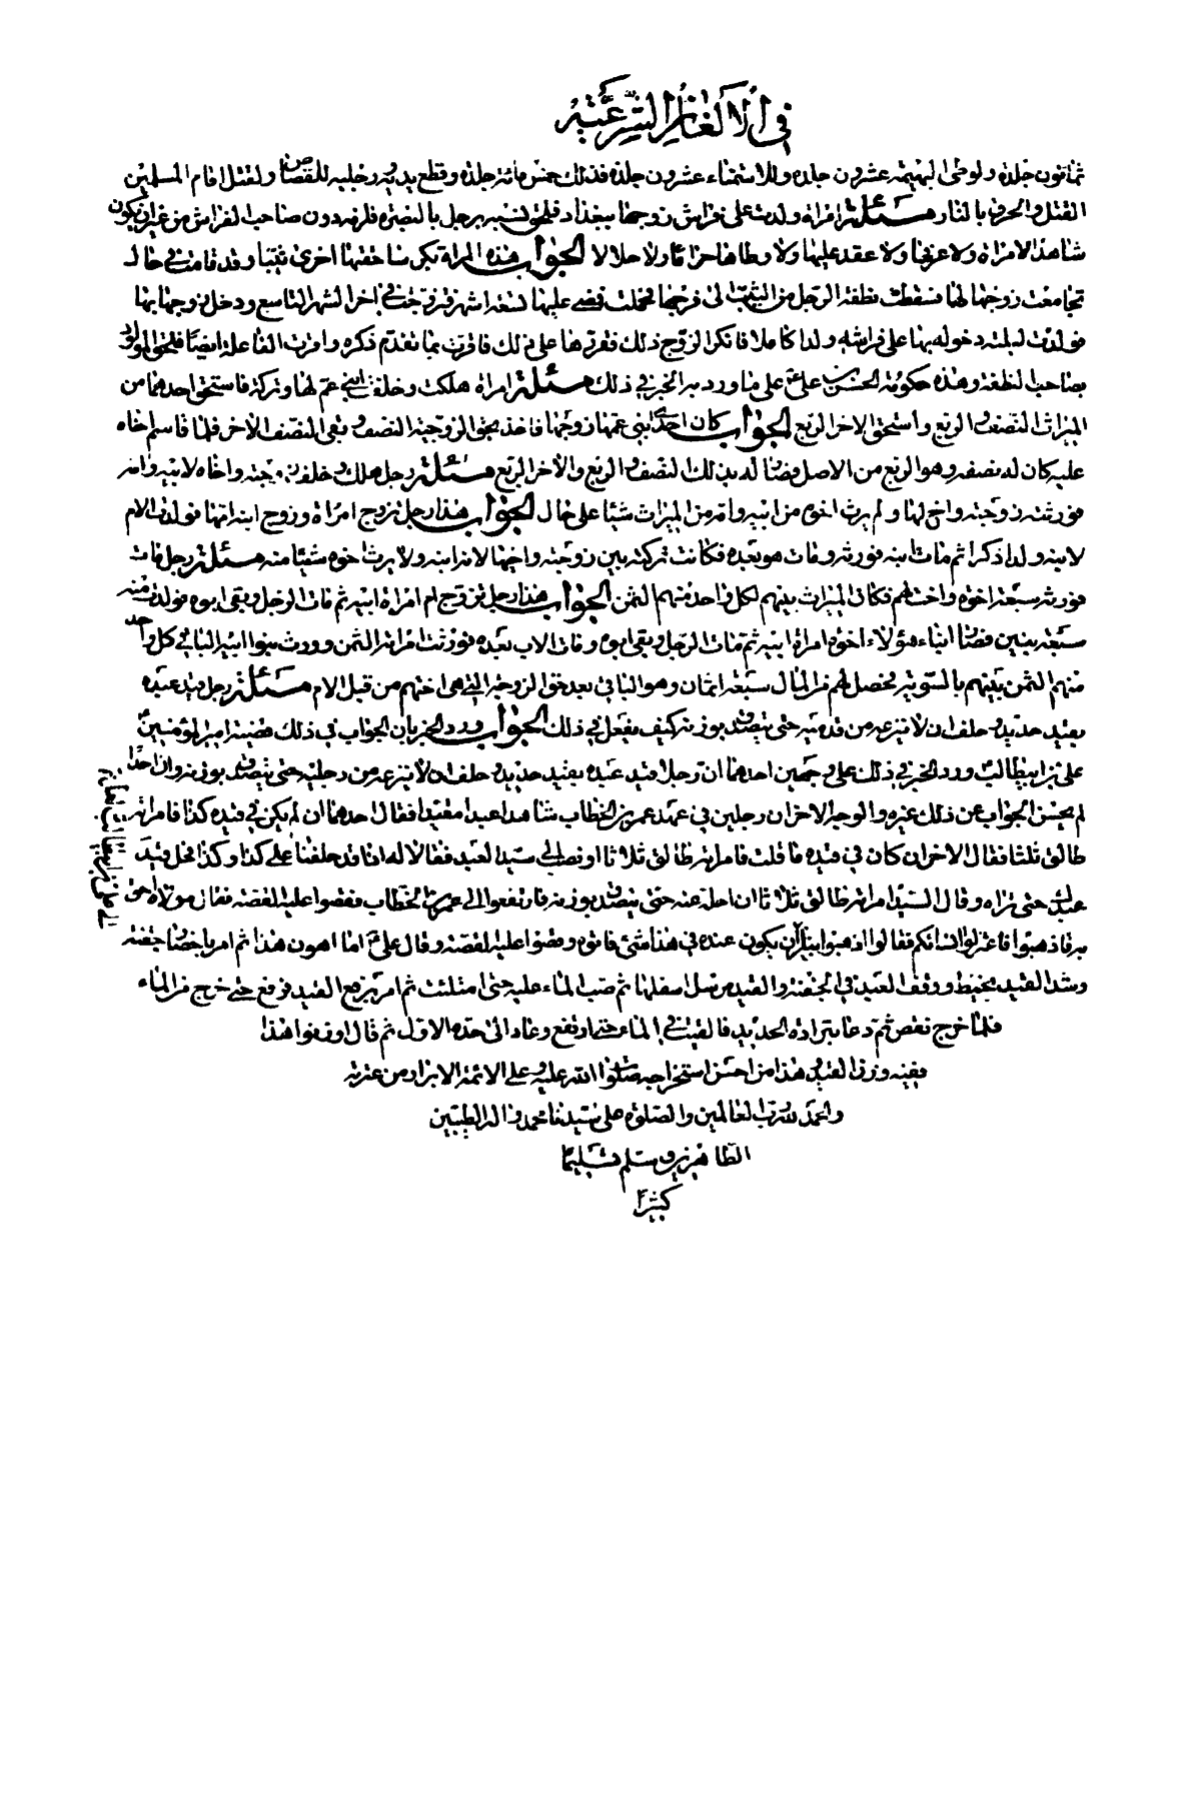 في الالغاز الشرعية
ثمانون جلدة ولوطى البهيمة عشرون جلدة وللاستمناء عشرون جلدة فذلك خمس مائة جلدة وقطع يديه ورجليه للقصاص ولقتل امام المسلمين
القتل والحرق بالنار مسئلة امراة ولدت على فراش زوجها ببغداد فلحق نسبه برجل بالبصرة فلزمه دون صاحب الفراش من غير ان يكون
شاهد الامراة ولا عرفها ولا عقد عليها ولا وطاها حراما ولا حلالا الجواب هذه المراة بكر ساحقتها اخرى ثيبا وقد قامت في حال
تجامعت زوجها لها فسقطت نطفة الرجل من الثيب الى فرجها فحملت فمضى عليها تسعة اشهر فتزوجت في اخر الشهر التاسع ودخل زوجها بها
فولدت ليلة دخوله بها على فراشه ولدا كاملا فانكر الزوج ذلك فقررها على ذلك فاقرت بما تقدم ذكره واقرت الفاعلة ايضا فلحق المولود
بصاحب النطفة وهذه حكومة الحسن بن علي على ما ورد به الخبر في ذلك مسئلة امراة هلكت وخلفت ابني عم لها وتركة فاستحق احدهما من
الميراث النصف والربع واستحق الاخر الربع الجواب كان احد ابني عمها زوجها فاخذ بحق الزوجية النصف وبقى النصف الاخر فلما قاسم اخاه
عليه كان له نصفه وهو الربع من الاصل فصار له بذلك النصف والربع والاخر الربع مسئلة رجل هلك وخلف زوجته واخاه لابيه وامه
فورثته زوجته واخ لها ولم يرث اخوه من ابيه وامه من الميراث شيئا على حال الجواب هذا رجل تزوج امراة وزوج ابنه امها فولدت الام
لابنه ولدا ذكرا ثم مات ابنه فورثه ومات هو بعده فكانت تركته بين زوجته واخيها لانه ابن ابنه ولا يرث اخوه شيئا منه مسئلة رجل مات
فورثه سبعة اخوة واخت لهم فكان الميراث بينهم لكل واحد منهم الثمن الجواب هذا رجل تزوج ام امراة ابيه ثم مات الرجل وبقى ابوه فولدت منه
سبعة بنين فصار ابناء هؤلاء اخوة امراة ابيه ثم مات الرجل وبقى ابوه ومات الاب بعده فورثت امراته الثمن وورث بنوا ابنه الباقي كل واحد
منهم الثمن بينهم بالسوية فحصل لهم من المال سبعة اثمان وهو الباقي بعد حق الزوجة التي هي اختهم من قبل الام مسئلة رجل قيد عبده
بقيد حديد وحلف ان لا ينزعه من قدميه حتى يتصدق بوزنه كيف يفعل في ذلك الجواب ورد الخبر بان الجواب في ذلك قضية امير المؤمنين
علي بن ابي طالب ورد الخبر في ذلك على وجهين احدهما ان رجلا قيد عبده بقيد حديد وحلف ان لا ينزعه من رجليه حتى يتصدق بوزنه وان احدا
لم يحسن الجواب عن ذلك غيره والوجه الاخر ان رجلين في عهد عمر بن الخطاب شاهدا عبدا مقيدا فقال احدهما ان لم يكن في قيده كذا فامراته
طالق ثلثا فقال الاخر ان كان في قيده ما قلت فامراته طالق ثلاثا او نصا الى سيد العبد فقالا له انا قد حلفنا على كذا وكذا فحل قيد
عبدك حتى نراه وقال السيد امراته طالق ثلاثا ان احله عنه حتى يتصدق بوزنه فارتفعوا الى عمر بن الخطاب فقصوا عليه القصة فقال مولاه احق
به فاذهبوا فاعتزلوا نسائكم فقالوا اذهبوا بنا ان يكون عنده في هذا شئ فاتوه وقصوا عليه القصة وقال علي ع اما اهون هذا ثم امر باحضار جفنة
وشد القيد بخيط ووقف العبد في الجفنة والقيد مرسل اسفلها ثم صب الماء عليه حتى امتلئت ثم امر برفع القيد فرفع حتى خرج من الماء
فلما خرج نقص ثم دعا ببرادة الحديد فالقيت في الماء حتى ارتفع وعاد الى حده الاول ثم قال اوزنوا هذا
ففيه وزن القيد وهذا من احسن استخراجه صلوات الله عليه وعلى الائمة الابرار من عترته
والحمد لله رب العالمين والصلوة على سيدنا محمد واله الطيبين
الطاهرين وسلم تسليما
كثيرا